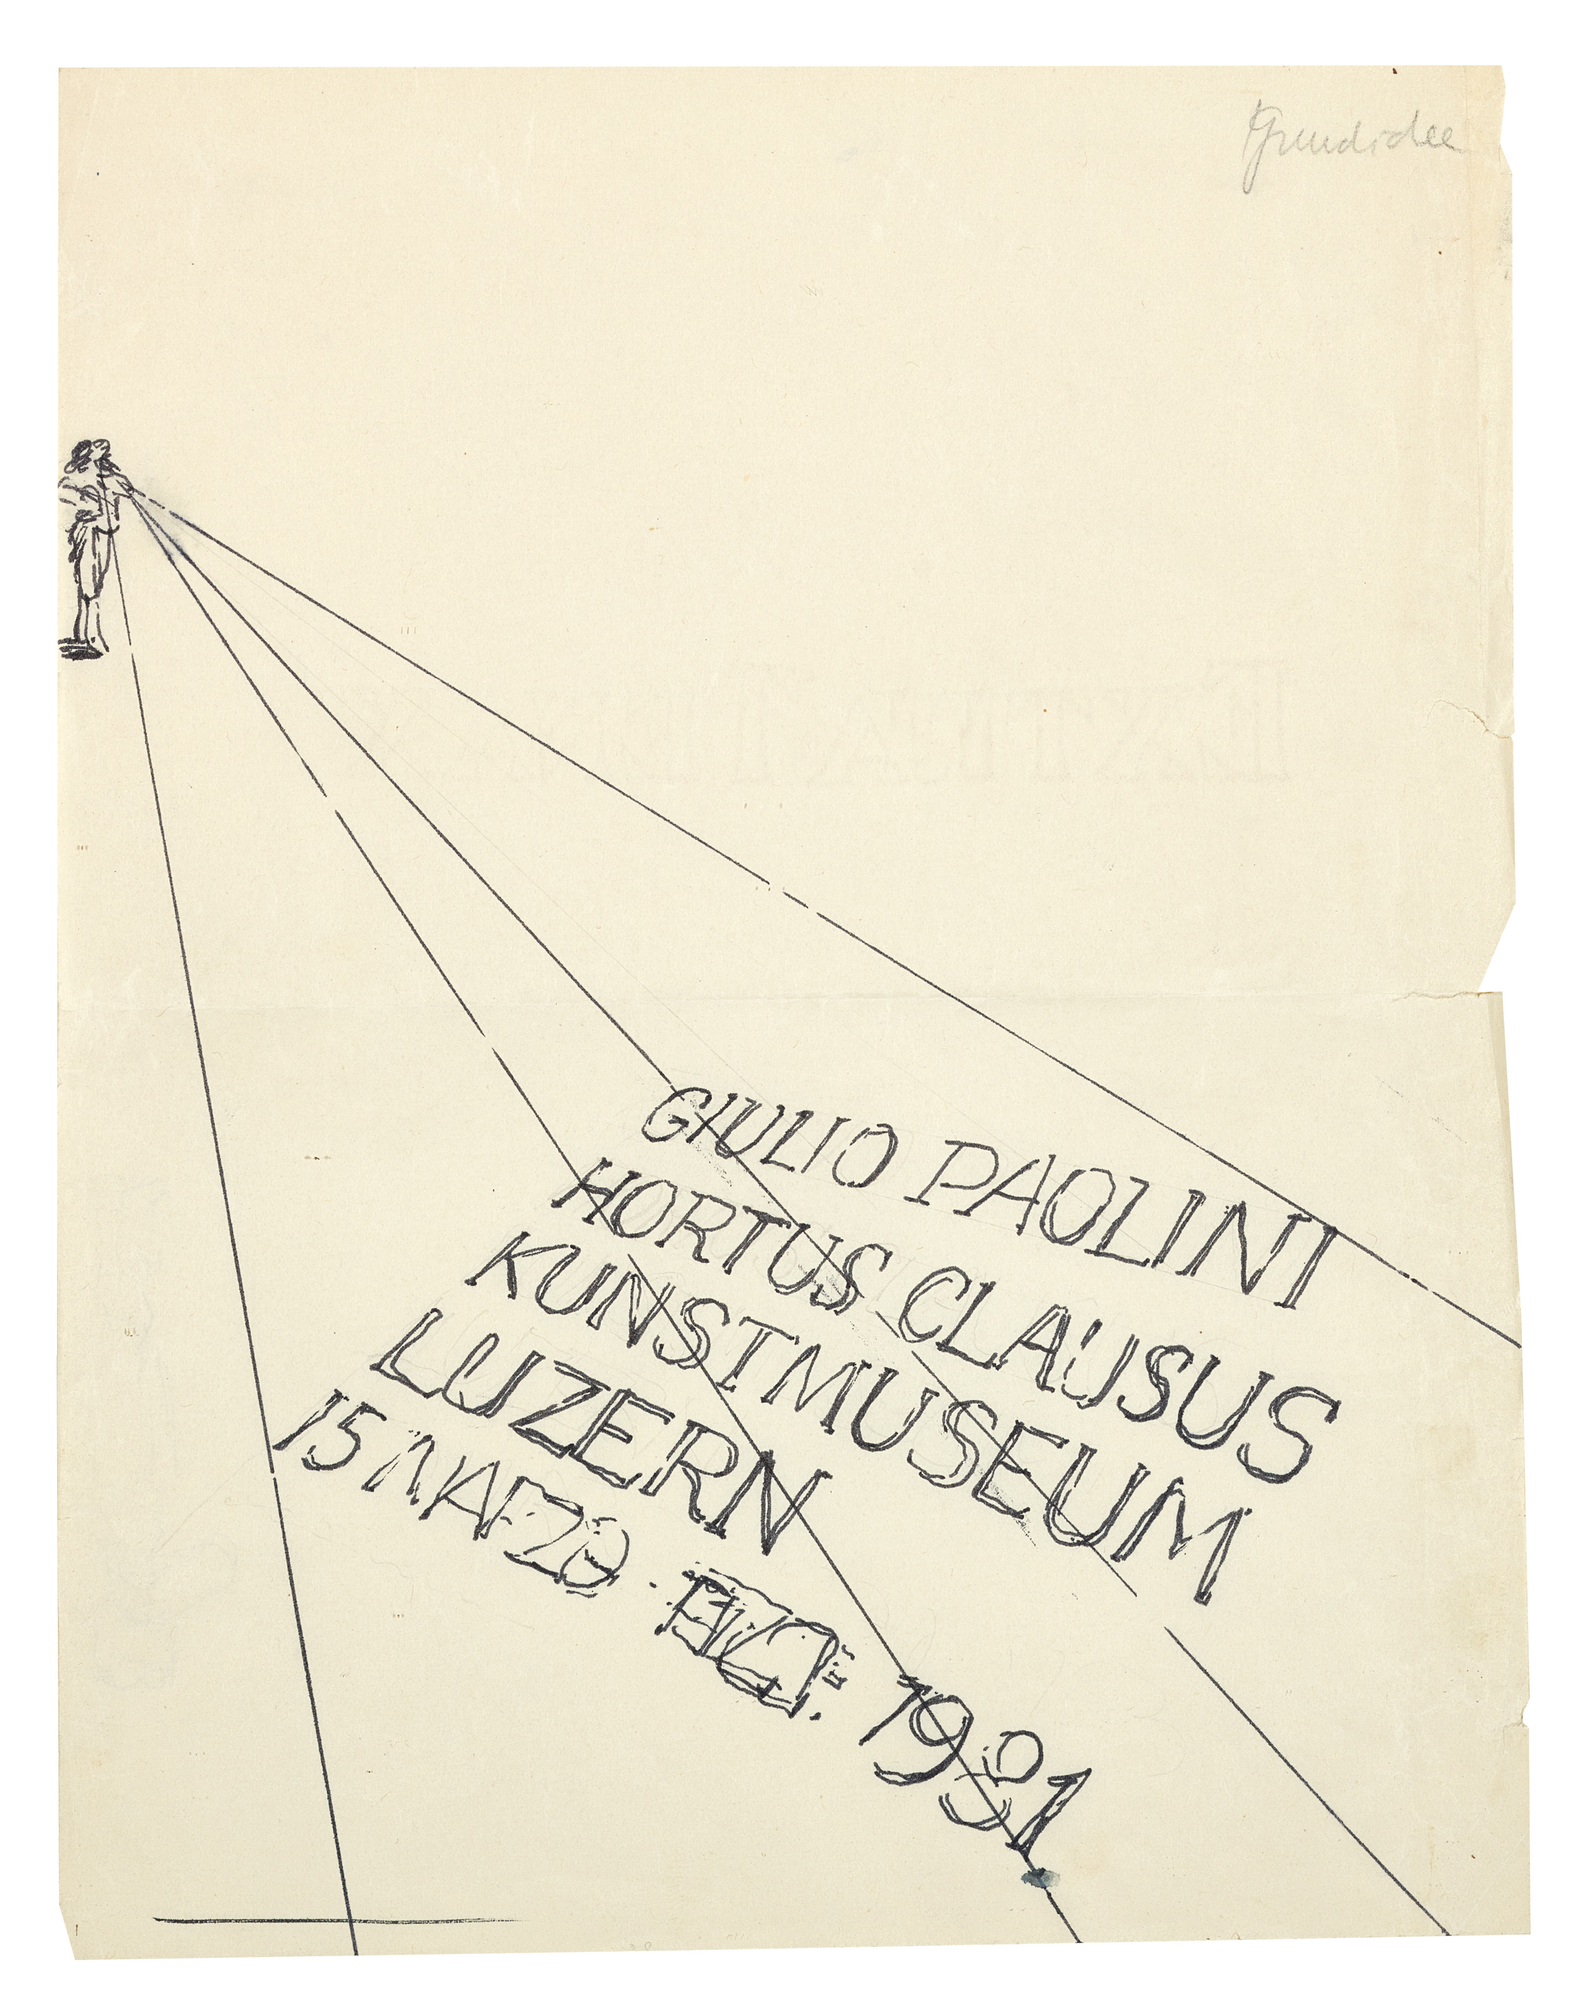 Grundidee
GIULIO PAOLINI
HORTUS CLAUSUS
KUNSTMUSEUM
LUZERN
15 MARZO · 1981